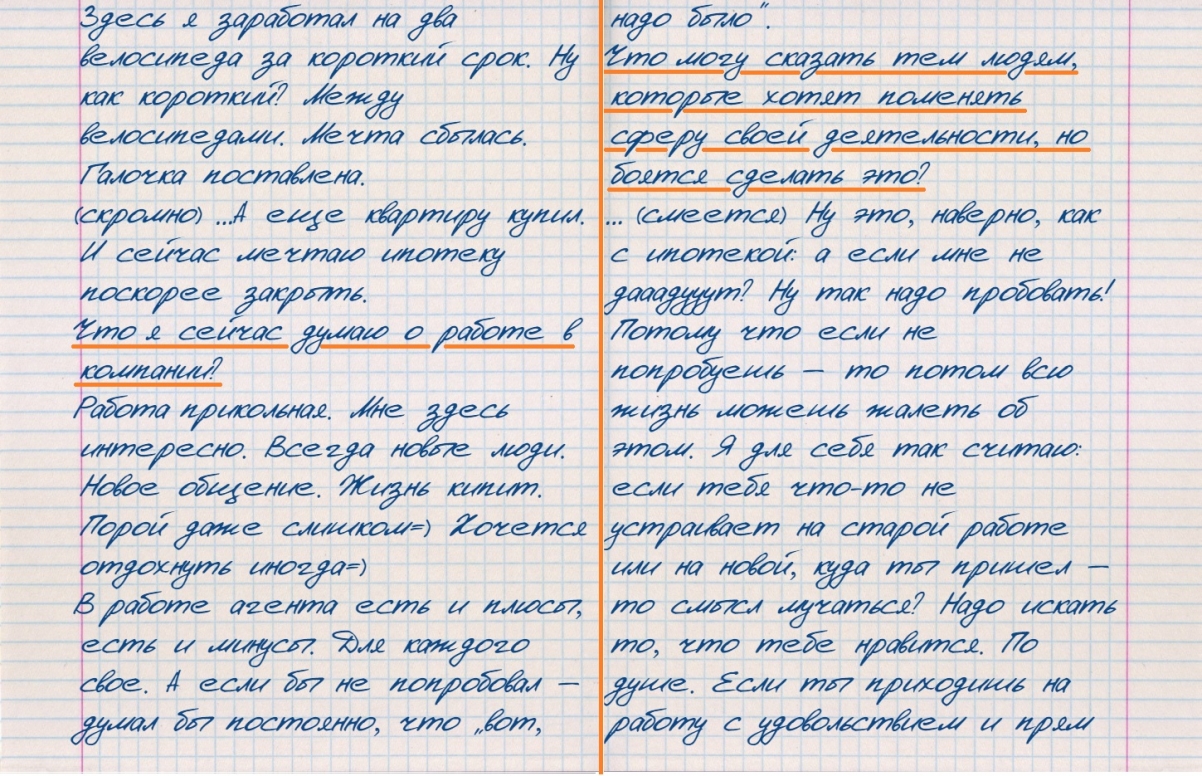 Здесь я заработал на два
велосипеда за короткий срок. Ну
как короткий? Между
велосипедами. Мечта сбылась.
Галочка поставлена.
(скромно) ...А еще квартиру купил.
И сейчас мечтаю ипотеку
поскорее закрыть.
Что я сейчас думаю о работе в
компании?
Работа прикольная. Мне здесь
интересно. Всегда новые люди.
Новое общение. Жизнь кипит.
Порой даже слишком=) Хочется
отдохнуть иногда=)
В работе агента есть и плюсы,
есть и минусы. Для каждого
свое. А если бы не попробовал —
думал бы постоянно, что „вот,
надо было”.
Что могу сказать тем людям,
которые хотят поменять
сферу своей деятельности, но
боятся сделать это?
... (смеется) Ну это, наверно, как
с ипотекой: а если мне не
дааадуууут? Ну так надо пробовать!
Потому что если не
попробуешь — то потом всю
жизнь можешь жалеть об
этом. Я для себя так считаю:
если тебя что-то не
устраивает на старой работе
или на новой, куда ты пришел —
то смысл мучаться? Надо искать
то, что тебе нравится. По
душе. Если ты приходишь на
работу с удовольствием и прям